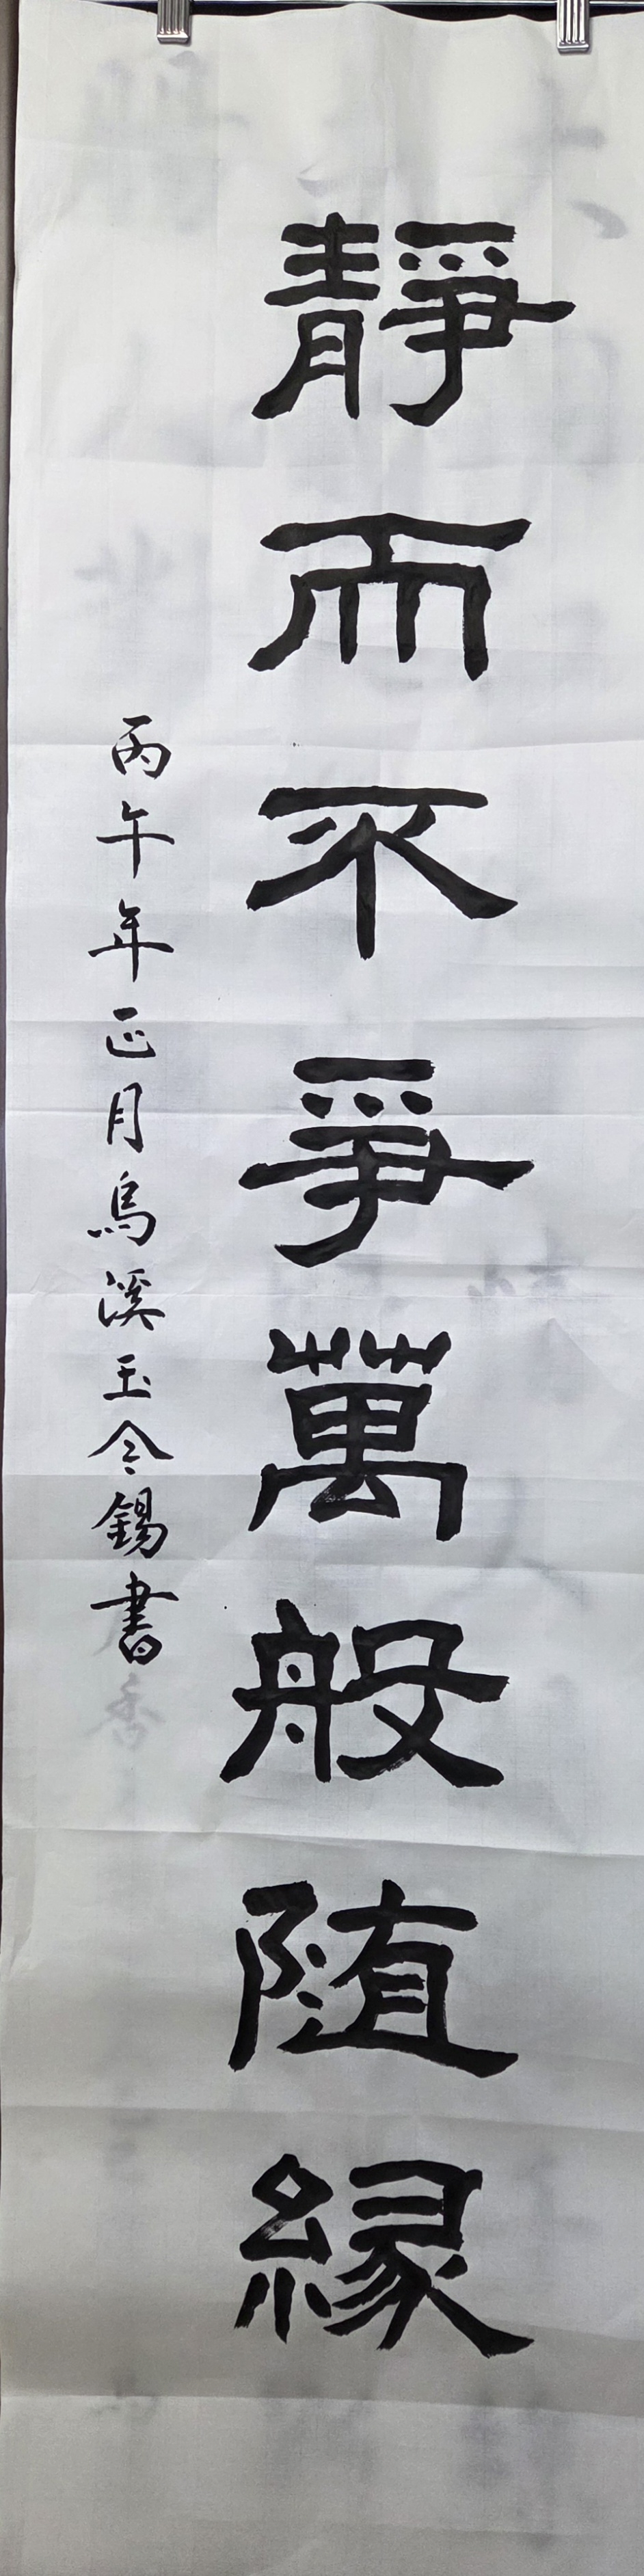 靜而不爭萬般随緣
丙午年正月烏溪玉令錫書